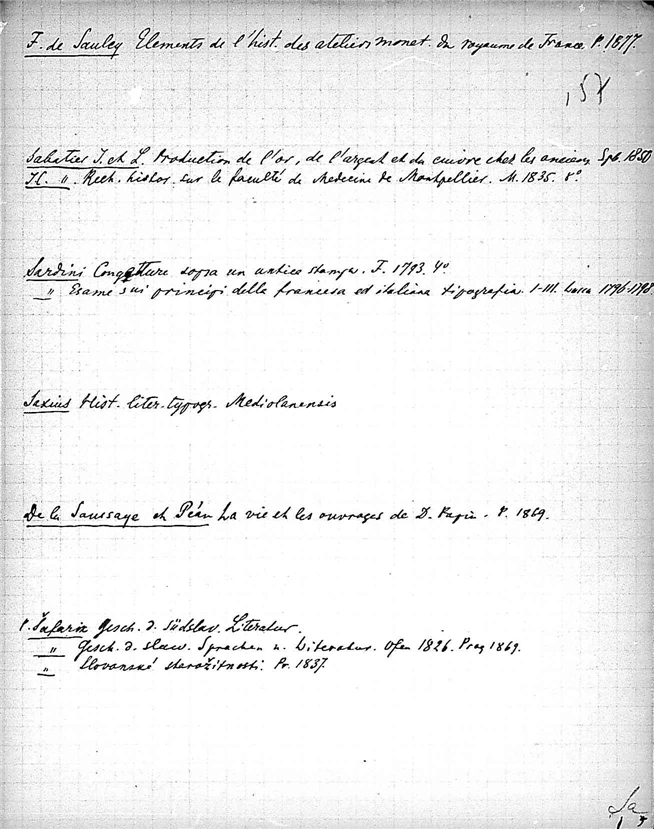 F. de Saulcy Elements de l'hist. des ateliers monet. du royaume de France. P. 1877.
157
Sabatier J. et L. Production de l'or, de l'argent et du cuivre chez les anciens Spb. 1850
" Rech. histor. sur la faculté de Medecine de Montpellier. M. 1835. 8°
Sardini Congetture sopra un antica stampa. F. 1793. 4°
" Esame sui principi della francesa ed italiana tipografia. I-III. Lucca 1796-1798
Saxius Hist. liter.-typogr. Mediolanensis
De la Saussaye et Péan La vie et les ouvrages de D. Papin. P. 1869.
P. Šafarik Gesch. d. südslav. Literatur.
" Gesch. d. slaw. Sprachen u. Literatur. Ofen 1826. Prag 1869.
" Slovanské starožitnosti. Pr. 1837.
Sa